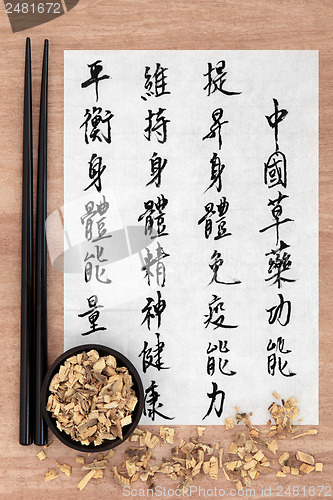 中國草藥功能
提昇身體免疫能力
維持身體精神健康
平衡身體能量
2481672
2481672